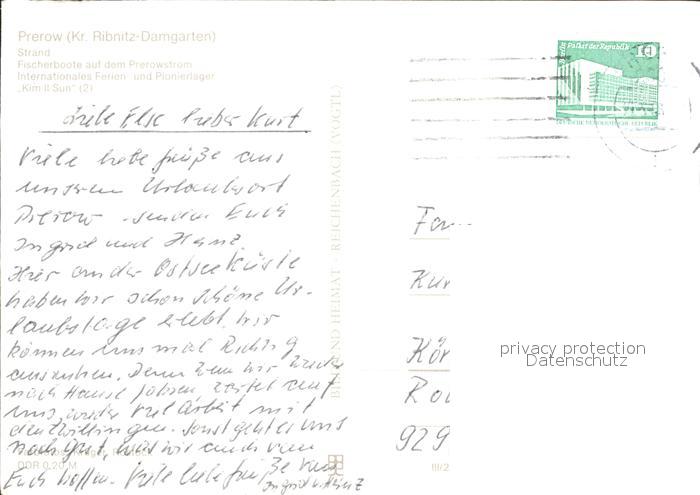 Prerow (Kr. Ribnitz-Damgarten)
Strand
Fischerboote auf dem Prerowstrom
Internationales Ferien- und Pionierlager
„Kim Il Sun" (2)
Liebe Else lieber Kurt
Viele liebe Grüße aus
unserem Urlaubsort
Prerow senden Euch
Ingrid und Heinz.
Hier an der Ostseeküste
haben wir schon schöne Ur-
laubstage erlebt, wir
können uns mal Richtig
ausruhen. Denn wenn wir wieder
nach Hause fahren wartet auf
uns wieder viel Arbeit mit
den Zwillingen. Sonst geht es uns
noch gut, was wir auch von
Euch hoffen. Viele liebe Grüße von
Ingrid u. Heinz
DDR 0,20 M
III/2
BILD UND HEIMAT · REICHENBACH (VOGTL)
Palast der Republik
10
DEUTSCHE DEMOKRATISCHE REPUBLIK
Fam
Kur
Kör
Ro
929
privacy protection
Datenschutz